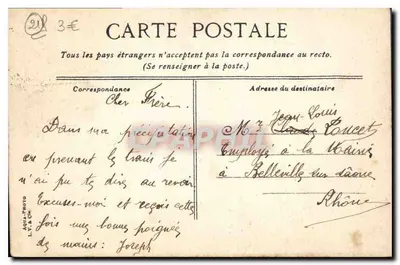 21
3€
CARTE POSTALE
Tous les pays étrangers n'acceptent pas la correspondance au recto.
(Se renseigner à la poste.)
Correspondance
Adresse du destinataire
Cher Frère.
Dans ma précipitation
en prenant le train je
n'ai pu te dire au revoir
Excuses-moi et reçois cette
fois une bonne poignée
de mains: Joseph
Jean-Louis
Mr Claude Poncet
Employé à la Mairie
à Belleville sur Saône
Rhône
AQUA-PHOTO
L.V. & Cie